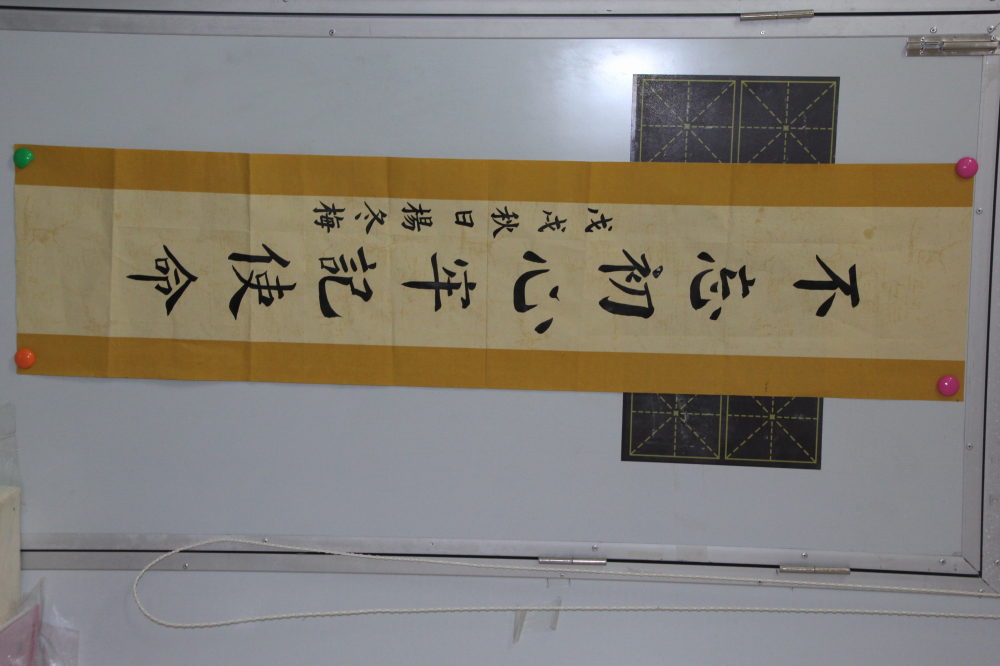 不忘初心牢記使命
戊戌秋日楊冬梅